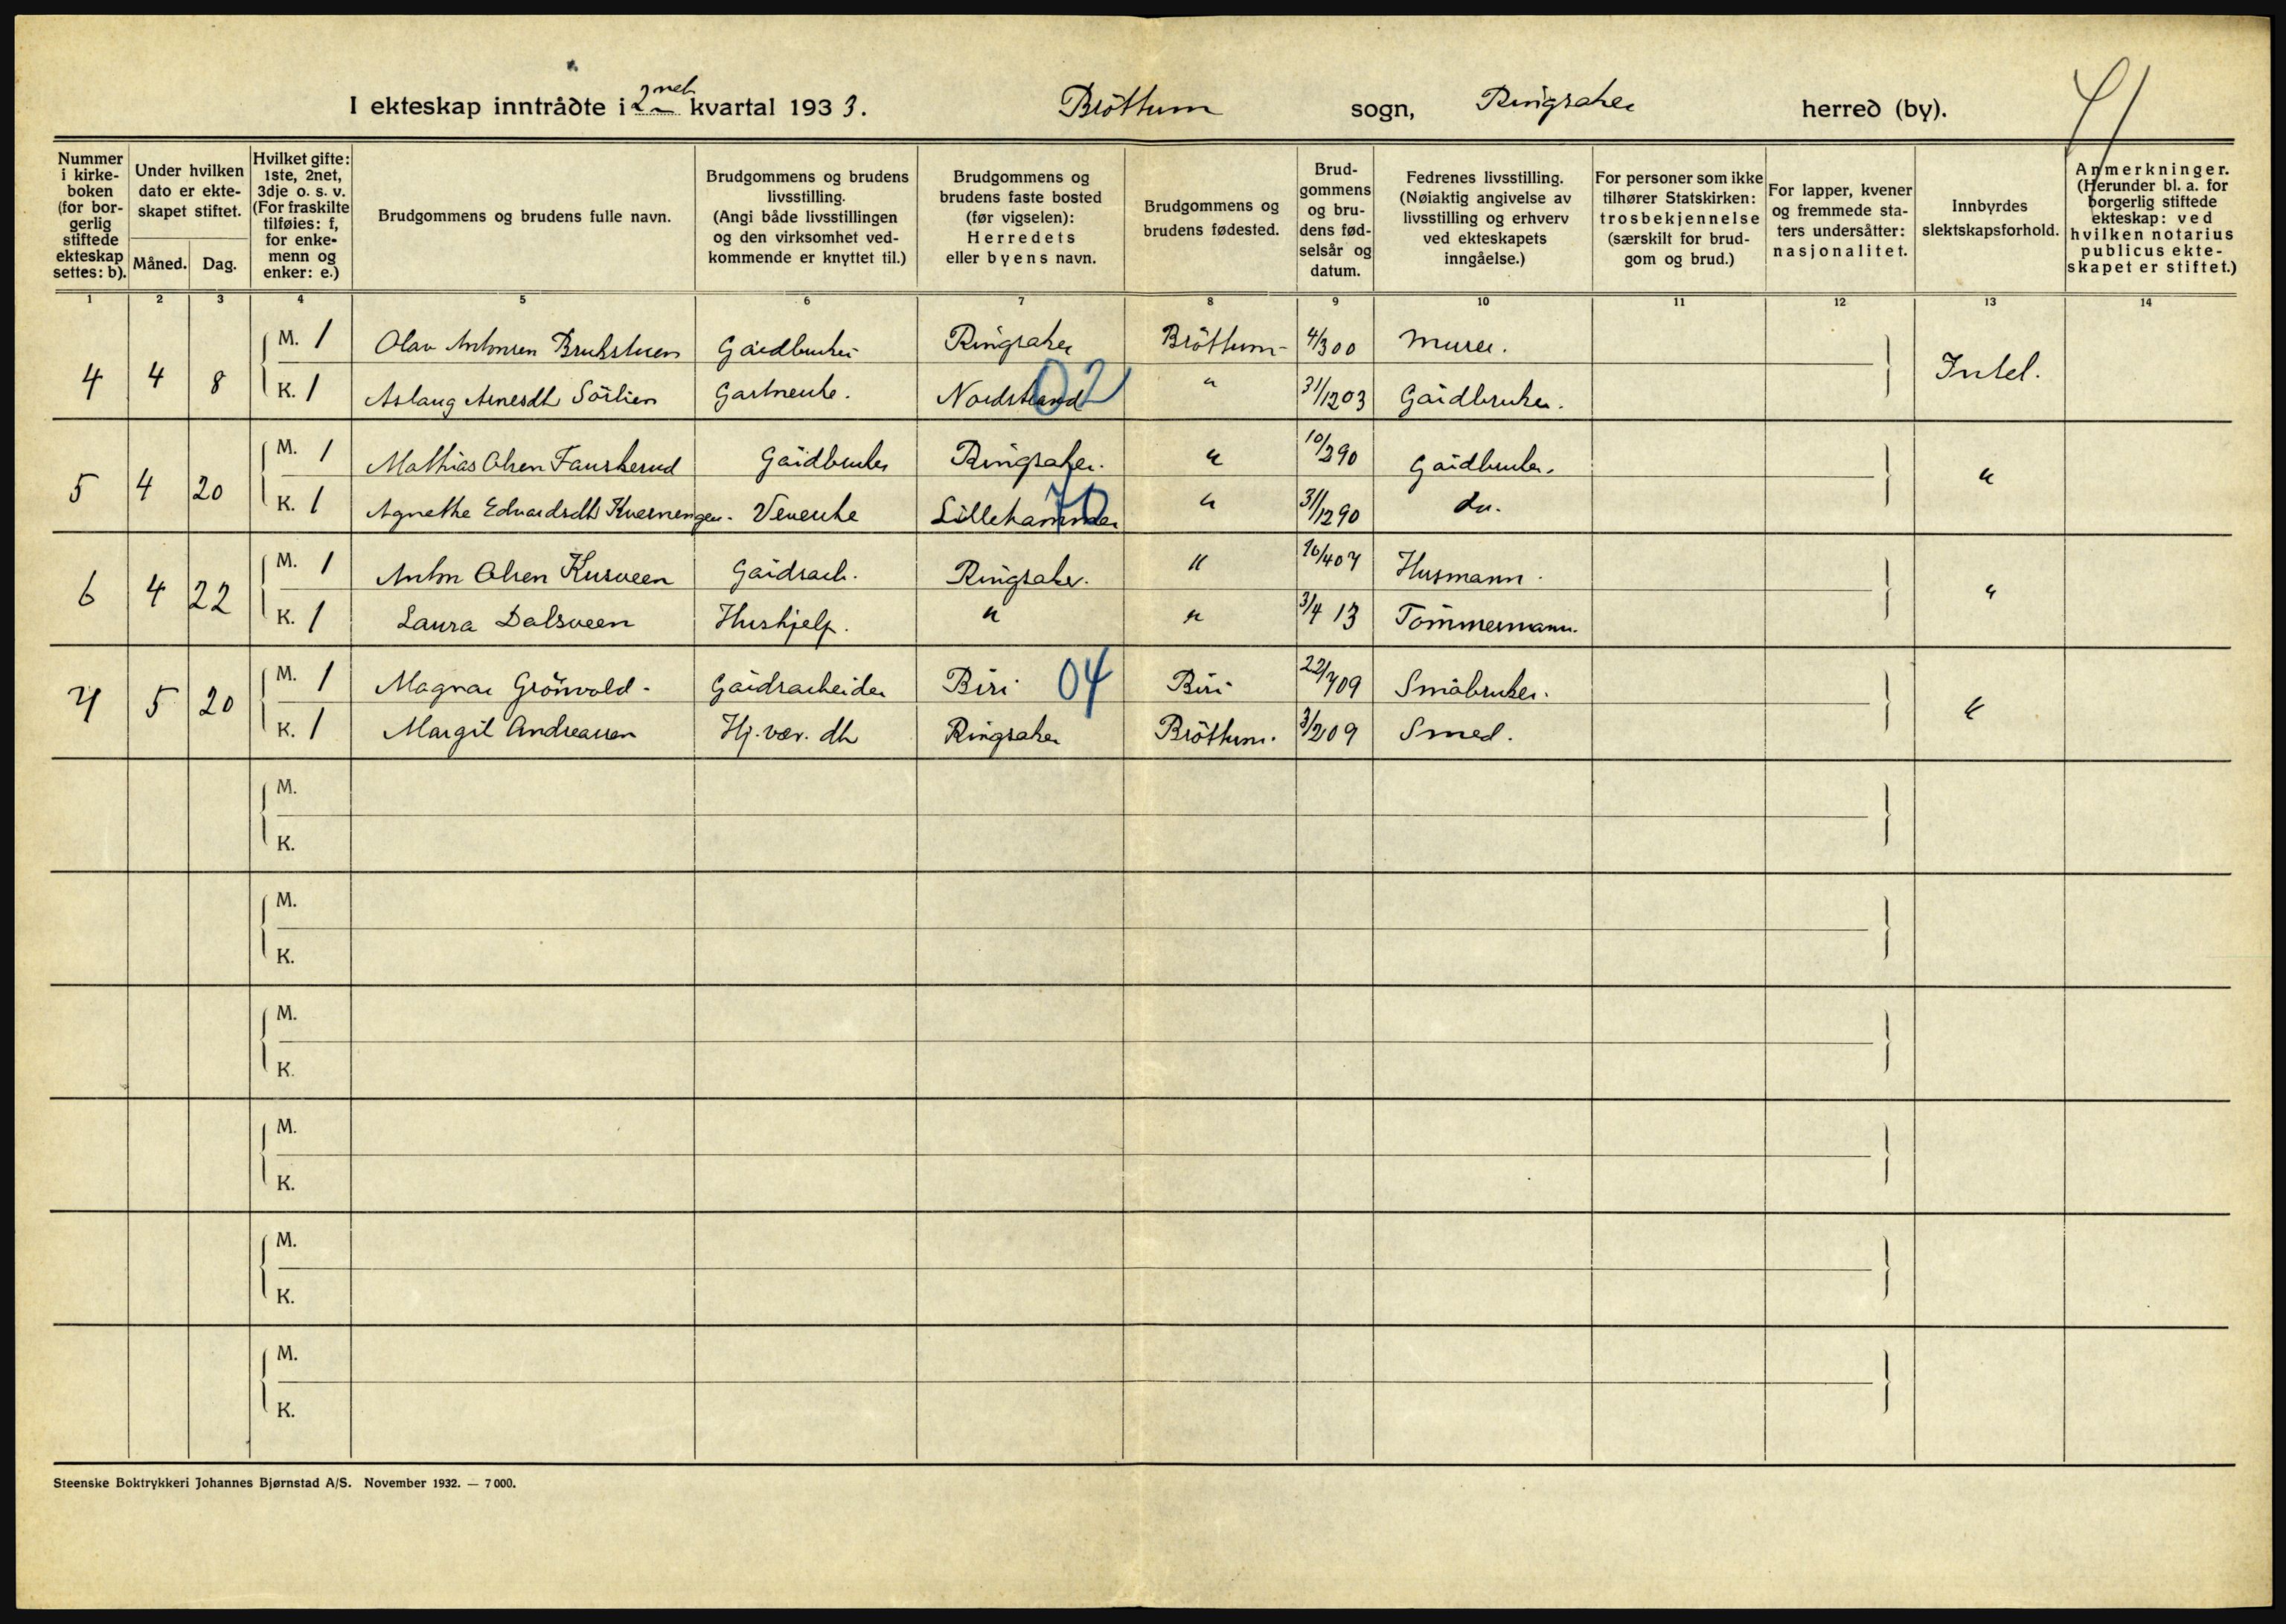 I ekteskap inntrådte i 2net kvartal 1933. Bröttum sogn, Ringsaker herred (by).
41
Nummer i kirkeboken (for borgerlig stiftede ekteskap settes: b).
Under hvilken dato er ekteskapet stiftet.
Måned. Dag.
Hvilket gifte: 1ste, 2net, 3dje o. s. v. (For fraskilte tilføies: f, for enkemenn og enker: e.)
Brudgommens og brudens fulle navn.
Brudgommens og brudens livsstilling. (Angi både livsstillingen og den virksomhet vedkommende er knyttet til.)
Brudgommens og brudens faste bosted (før vigselen): Herredets eller byens navn.
Brudgommens og brudens fødested.
Brudgommens og brudens fødselsår og datum.
Fedrenes livsstilling. (Nøiaktig angivelse av livsstilling og erhverv ved ekteskapets inngåelse.)
For personer som ikke tilhører Statskirken: trosbekjennelse (særskilt for brudgom og brud.)
For lapper, kvener og fremmede staters undersåtter: nasjonalitet.
Innbyrdes slektskapsforhold.
Anmerkninger. (Herunder bl. a. for borgerlig stiftede ekteskap: ved hvilken notarius publicus ekteskapet er stiftet.)
1 2 3 4 5 6 7 8 9 10 11 12 13 14
4 4 8 M. 1 Olav Antonsen Brukstuen Gårdbruker Ringsaker Bröttum- 4/3 00 Murer. Intet.
K. 1 Aslaug Arnesdt Sörlien Gartnerske. Nordstrand 02 " 31/12 03 Gårdbruker.
5 4 20 M. 1 Mathias Olsen Fauskerud Gårdbruker Ringsaker. " 10/2 90 Gårdbruker. "
K. 1 Agnethe Edvardsdt Kvernengen. Veverske Lillehammer 70 " 31/12 90 do.
6 4 22 M. 1 Anton Olsen Kusveen Gårdsarb. Ringsaker. " 16/4 07 Husmann. "
K. 1 Laura Dalsveen Hushjelp. " " 3/4 13 Tömmermann.
7 5 20 M. 1 Magnar Grönvold - Gårdsarbeider Biri 04 Biri 22/7 09 Småbruker. "
K. 1 Margit Andreassen Hj. vær. dt Ringsaker Bröttum. 3/2 09 Smed.
M.
K.
M.
K.
M.
K.
M.
K.
M.
K.
M.
K.
Steenske Boktrykkeri Johannes Bjørnstad A/S. November 1932. — 7 000.